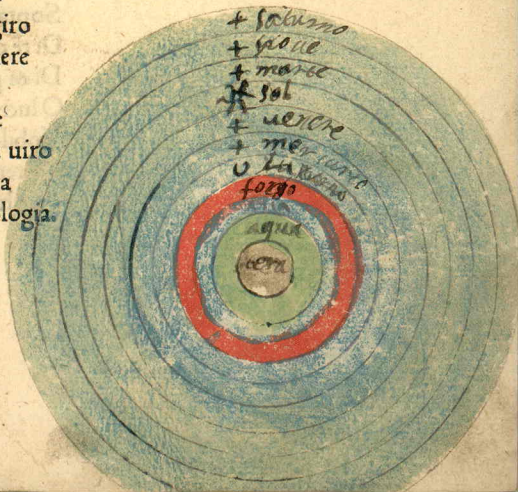 giro
ere
uiro
a
logia.
+ saturno
+ giove
+ marte
sol
+ venere
+ mercurio
luna
fogo
aqua
tera